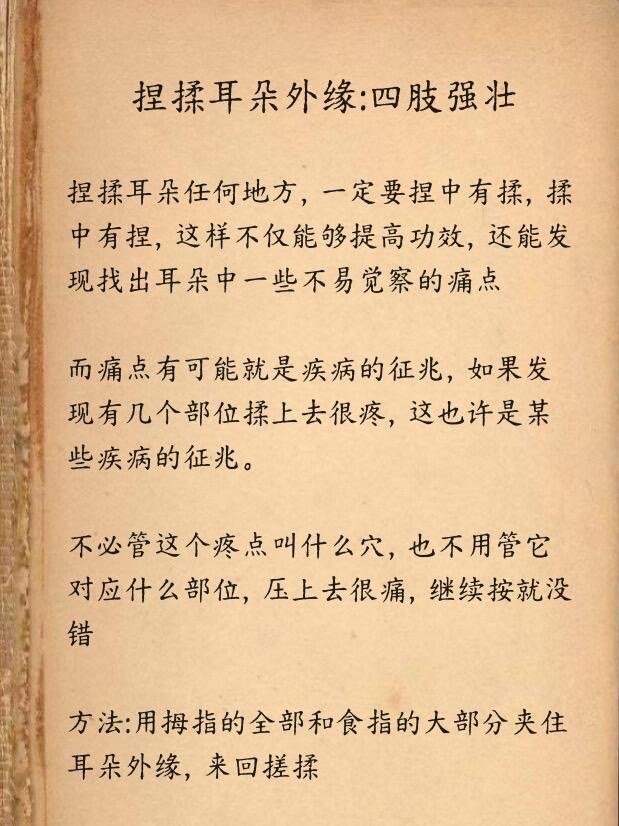 捏揉耳朵外缘:四肢强壮
捏揉耳朵任何地方, 一定要捏中有揉, 揉
中有捏, 这样不仅能够提高功效, 还能发
现找出耳朵中一些不易觉察的痛点
而痛点有可能就是疾病的征兆, 如果发
现有几个部位揉上去很疼, 这也许是某
些疾病的征兆。
不必管这个疼点叫什么穴, 也不用管它
对应什么部位, 压上去很痛, 继续按就没
错
方法:用拇指的全部和食指的大部分夹住
耳朵外缘, 来回搓揉